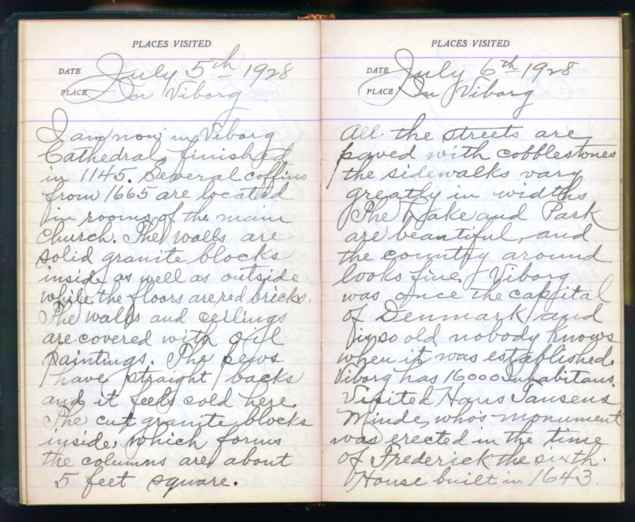 PLACES VISITED
DATE July 5th 1928
PLACE In Viborg
I am now in Viborg
Cathedral, finished
in 1145. Several coffins
from 1665 are located
in rooms of the main
church. The walls are
solid granite blocks
inside, as well as outside
while the floors are red bricks.
The walls and ceilings
are covered with oil
paintings. The pews
have straight backs
and it feels cold here.
The cut granite blocks
inside, which forms
the columns are about
5 feet square.
PLACES VISITED
DATE July 6th 1928
PLACE In Viborg
All the streets are
paved with cobblestones
the sidewalks vary
greatly in widths
The Lake and Park
are beautiful, and
the country around
looks fine. Viborg
was once the capital
of Denmark and
is so old nobody knows
when it was established.
Viborg has 16000 inhabitans.
Visited Hans Tausens
Minde, who's monument
was erected in the time
of Frederick the sixth.
House built in 1643